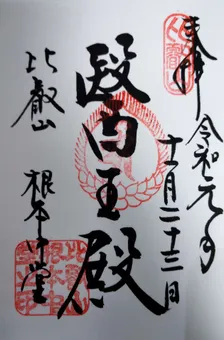 奉拝 令和元年
十一月二十三日
醫王殿
比叡山
根本中堂
比叡山
比叡山
根本中
堂之印